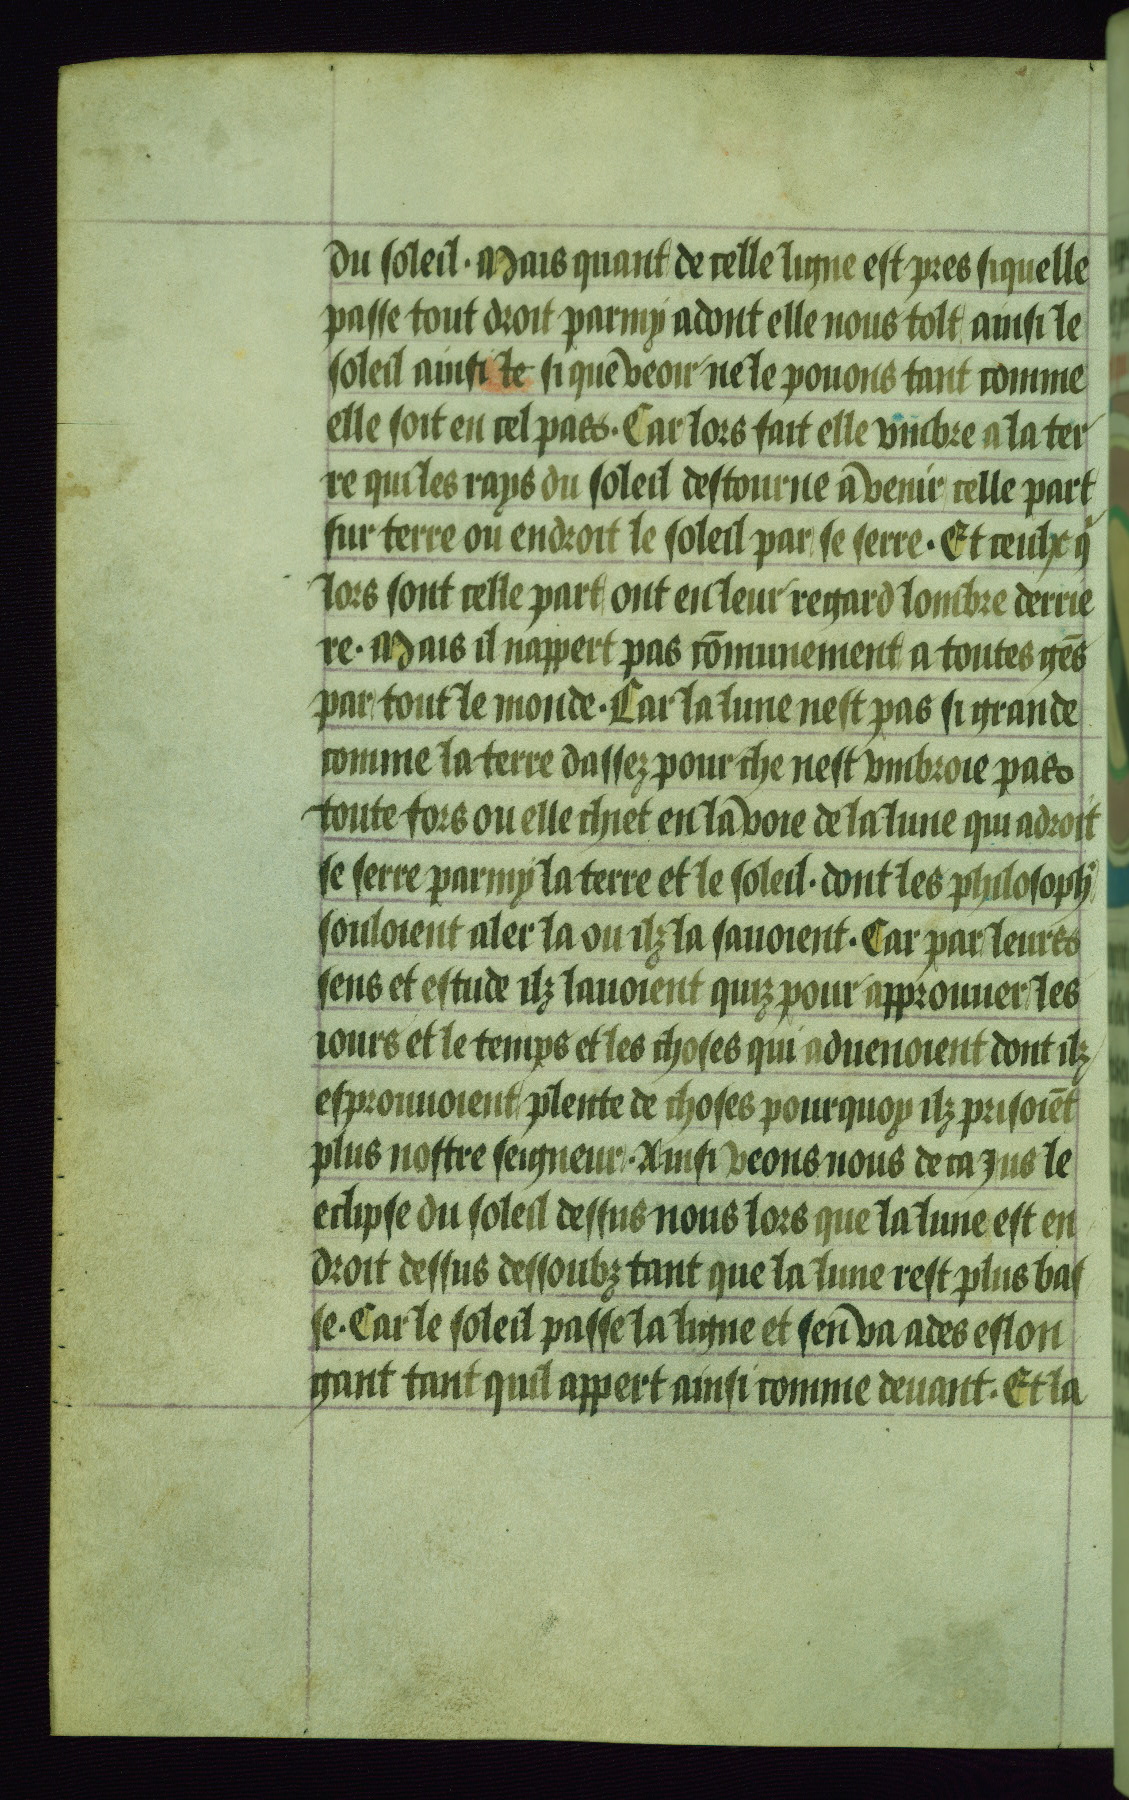 du soleil. Mais quant de celle ligne est pres si quelle
passe tout droit parmy adont elle nous tolt ainsi le
soleil ainsi le si quē veoir ne le pouons tant comme
elle soit en cel pass. Car lors fait elle vmbre a la ter
re qui les rays du soleil destourne a venir celle part
sur terre ou endroit le soleil par se serre. Et ceulx q̄
lors sont celle part ont en leur regard lombre derrie
re. Mais il nappert pas cōmunement a toutes gēs
par tout le monde. Car la lune nest pas si grande
comme la terre dassez pour che nest vmbroie pas
toute fors ou elle chiet en la voie de la lune qui a droit
se serre parmy la terre et le soleil. dont les philosoph̄
souloient aler la ou ilz la sauoient. Car par leures
sens et estude ilz lauoient quiz pour approuuer les
iours et le temps et les choses qui aduenoient dont ilz
esprouuoient plente de choses pourquoy ilz prisoiēt
plus nostre seigneur. Ainsi veons nous de ca jus le
eclipse du soleil dessus nous lors que la lune est en
droit dessus dessoubz tant que la lune rest plus bas
se. Car le soleil passe la ligne et sen va ades eslon
gant tant quil appert ainsi comme deuant. Et la